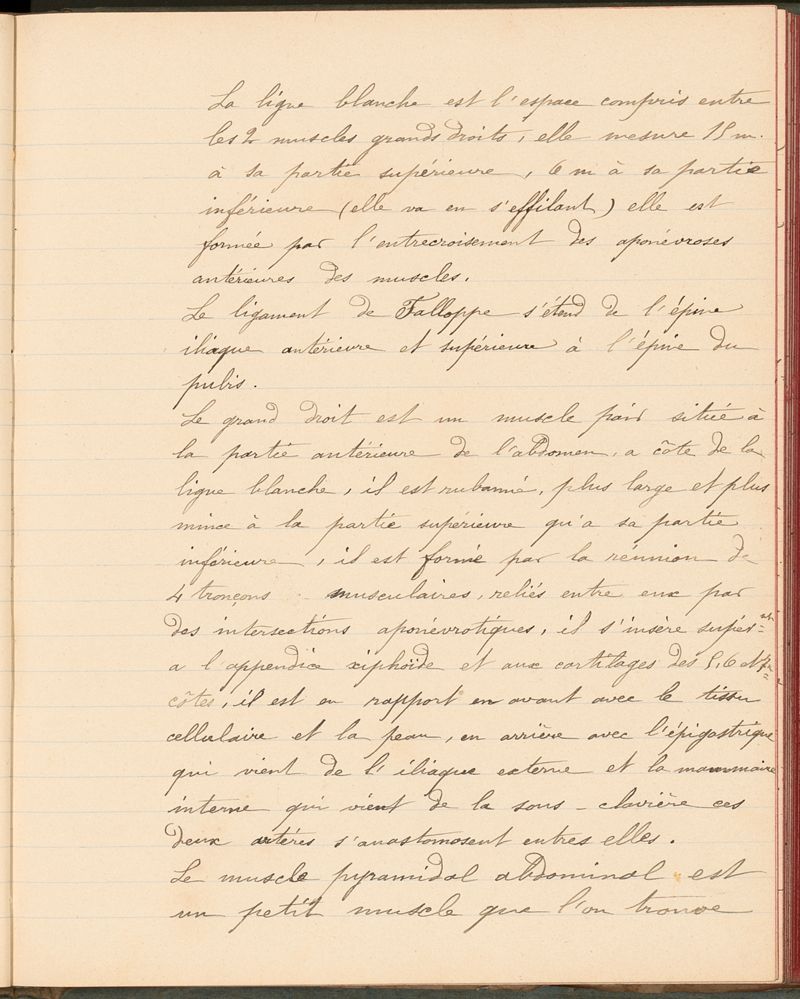 La ligne blanche est l'espace compris entre
les 2 muscles grands droits, elle mesure 15 m.
à sa partie supérieure, 6 m à sa partie
inférieure (elle va en s'effilant) elle est
formée par l'entrecroisement des aponévroses
antérieures des muscles.
Le ligament de Falloppe s'étend de l'épine
iliaque antérieure et supérieure à l'épine du
pubis.
Le grand droit est un muscle pair situé à
la partie antérieure de l'abdomen, a côte de la
ligne blanche, il est rubanné, plus large et plus
mince à la partie supérieure qu'a sa partie
inférieure, il est formé par la réunion de
4 tronçons musculaires, reliés entre eux par
des intersections aponévrotiques, il s'insère supér-
a l'appendice xiphoïde et aux cartilages des 5, 6 et 7
côtes, il est en rapport en avant avec le tissu
cellulaire et la peau, en arrière avec l'épigastrique
qui vient de l'iliaque externe et la mammaire
interne qui vient de la sous-clavière ces
deux artères s'anastomosent entres elles.
Le muscle pyramidal abdominal est
un petit muscle que l'on trouve